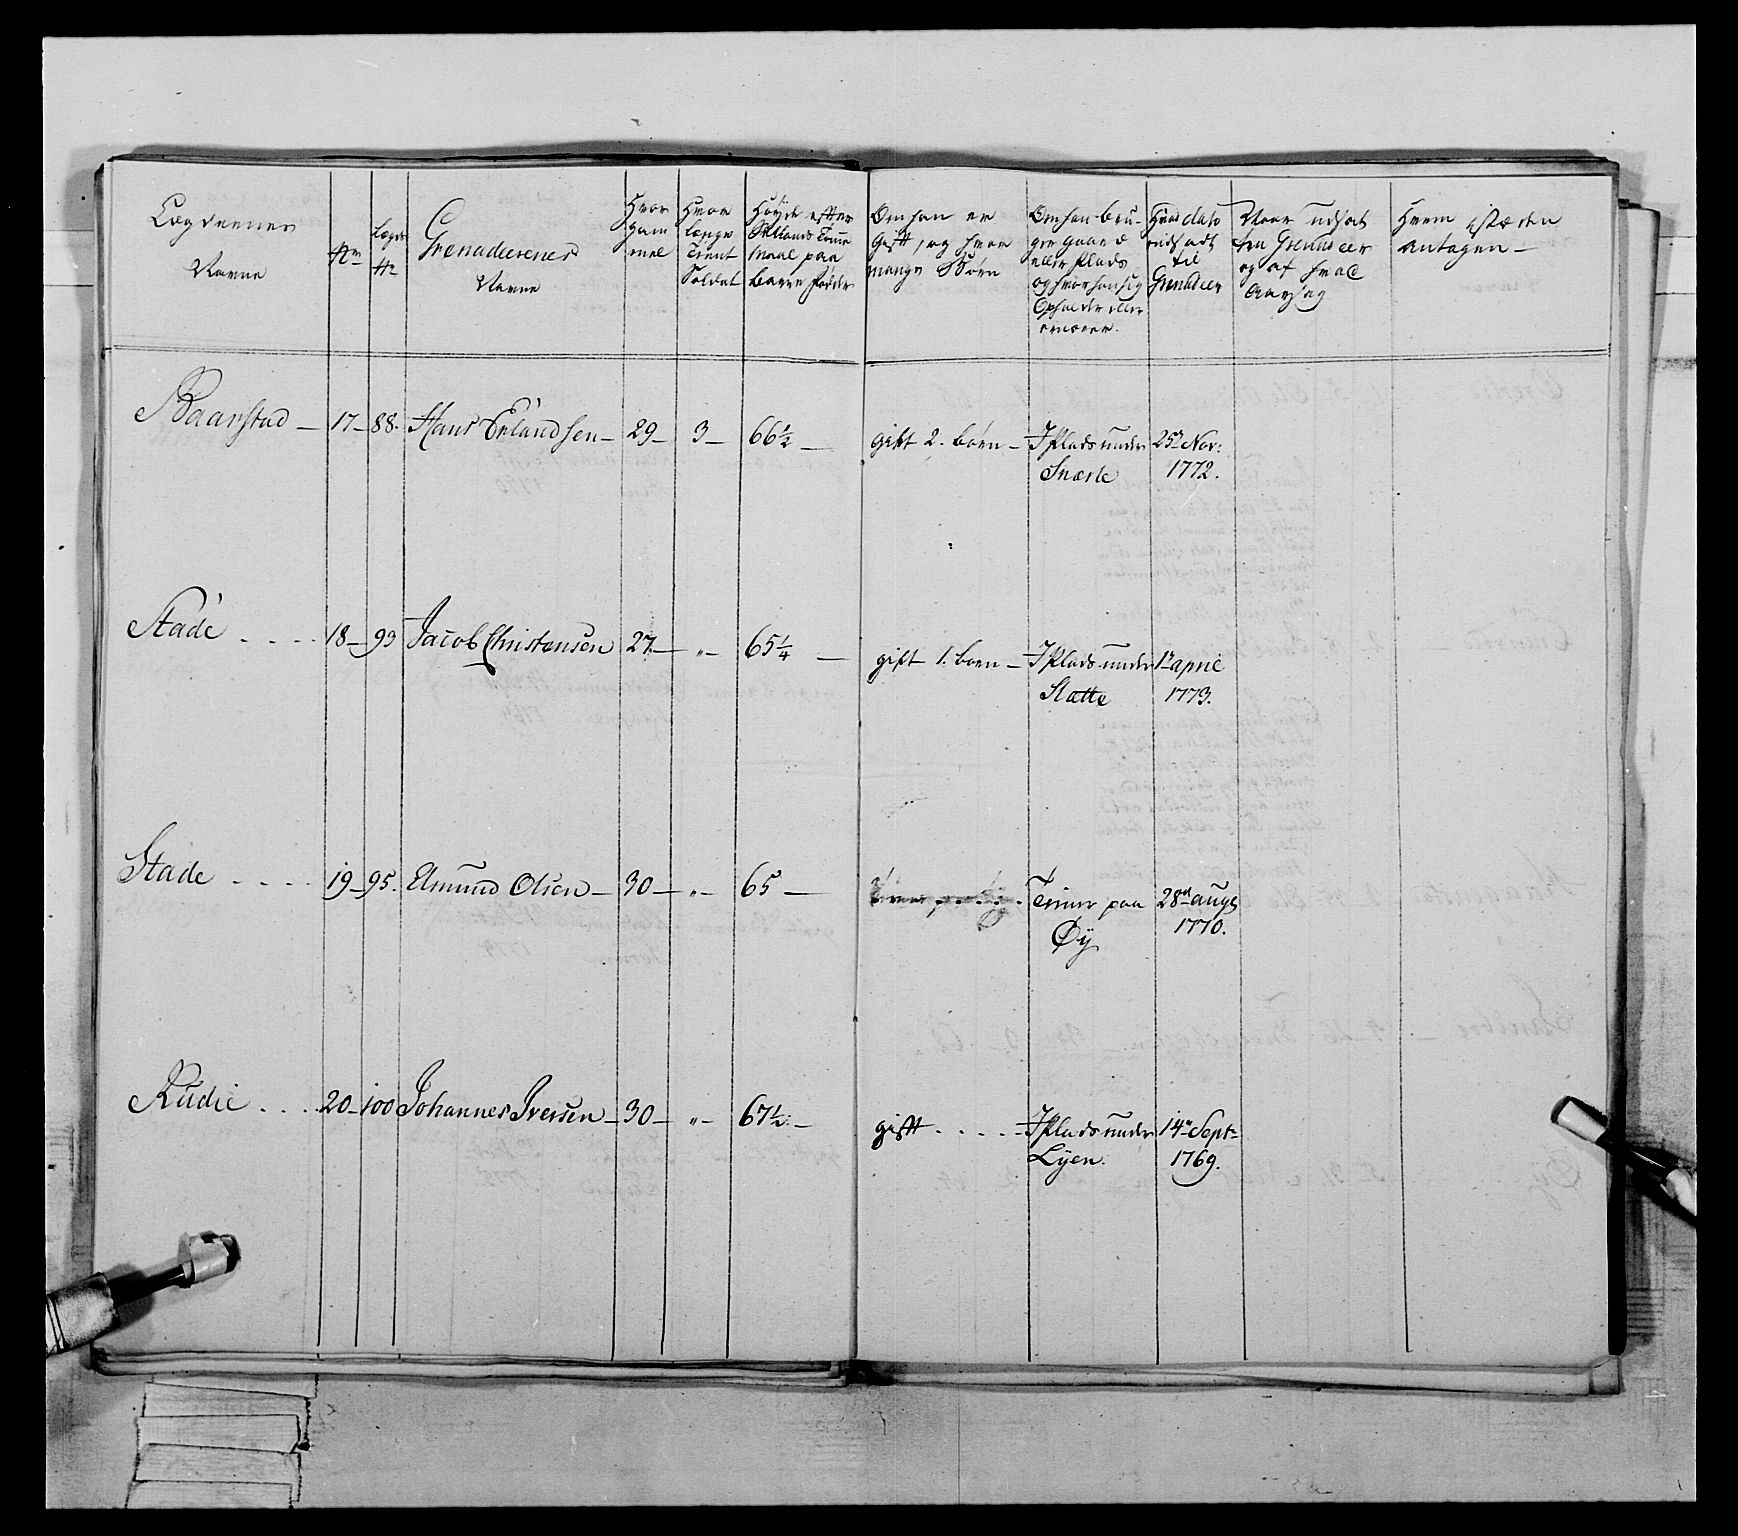 Lægdernes
Navne
No
Lægds
No
Grenadeerenes
Navne
Hvor
gam
mel
Hvor
længe
Tient
Soldat
Høyde efter
Sællands Tomme
Maal paa
barre Fødder
Om han er
Gift, og hvor
mange Børn
Om han bru-
ger gaard
eller Plads
og hvor han sig
Opholder eller
ernærer.
Hvad dato
udsadt
til
Grenadeer
Naar udsadt
fra Grenadeer
og af hvad
Aarsag
Hvem istæden
antagen —
Baarstad — 17 — 88. Hans Erlandsen — 29 — 3 — 66½ — gift 2. børn — I Plads under 25de Nov:
Snærle 1772.
Stade . . . . 18 — 93 Jacob Christensen 27 — " — 65¼ — gift 1. barn — I Plads under 1te april
Slatte 1773.
Stade . . . . 19 — 95. Amund Olsen — 30 — " — 65 — Tiener paa 28de augs
Øy 1770.
Rudie . . . . 20 — 100 Johannes Iversen — 30 — " — 67½ — gift . . . . . I Plads under 14de Septr
Lyen. 1769.